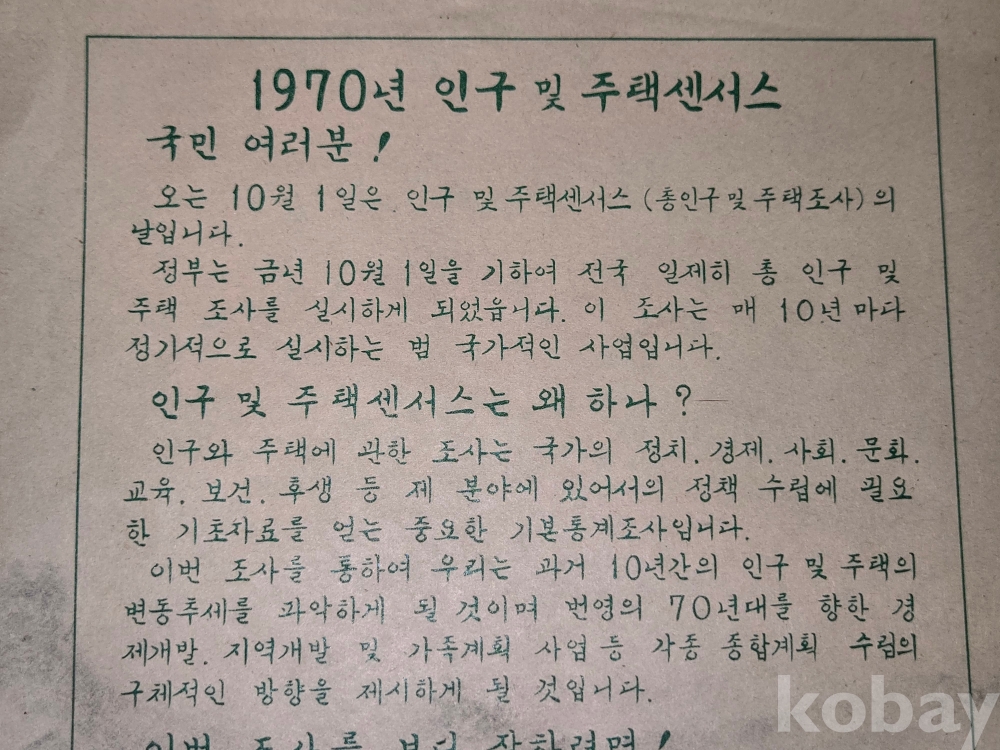 1970년 인구 및 주택센서스
국민 여러분!
오는 10월 1일은 인구 및 주택센서스 (총인구 및 주택조사)의
날입니다.
정부는 금년 10월 1일을 기하여 전국 일제히 총 인구 및
주택 조사를 실시하게 되었읍니다. 이 조사는 매 10년 마다
정기적으로 실시하는 범 국가적인 사업입니다.
인구 및 주택센서스는 왜 하나?
인구와 주택에 관한 조사는 국가의 정치. 경제. 사회. 문화.
교육. 보건. 후생 등 제 분야에 있어서의 정책 수립에 필요
한 기초자료를 얻는 중요한 기본통계조사입니다.
이번 조사를 통하여 우리는 과거 10년간의 인구 및 주택의
변동추세를 파악하게 될 것이며 번영의 70년대를 향한 경
제개발. 지역개발 및 가족계획 사업 등 각종 종합계획 수립의
구체적인 방향을 제시하게 될 것입니다.
이번 조사를 보다 잘하려면!
kobay